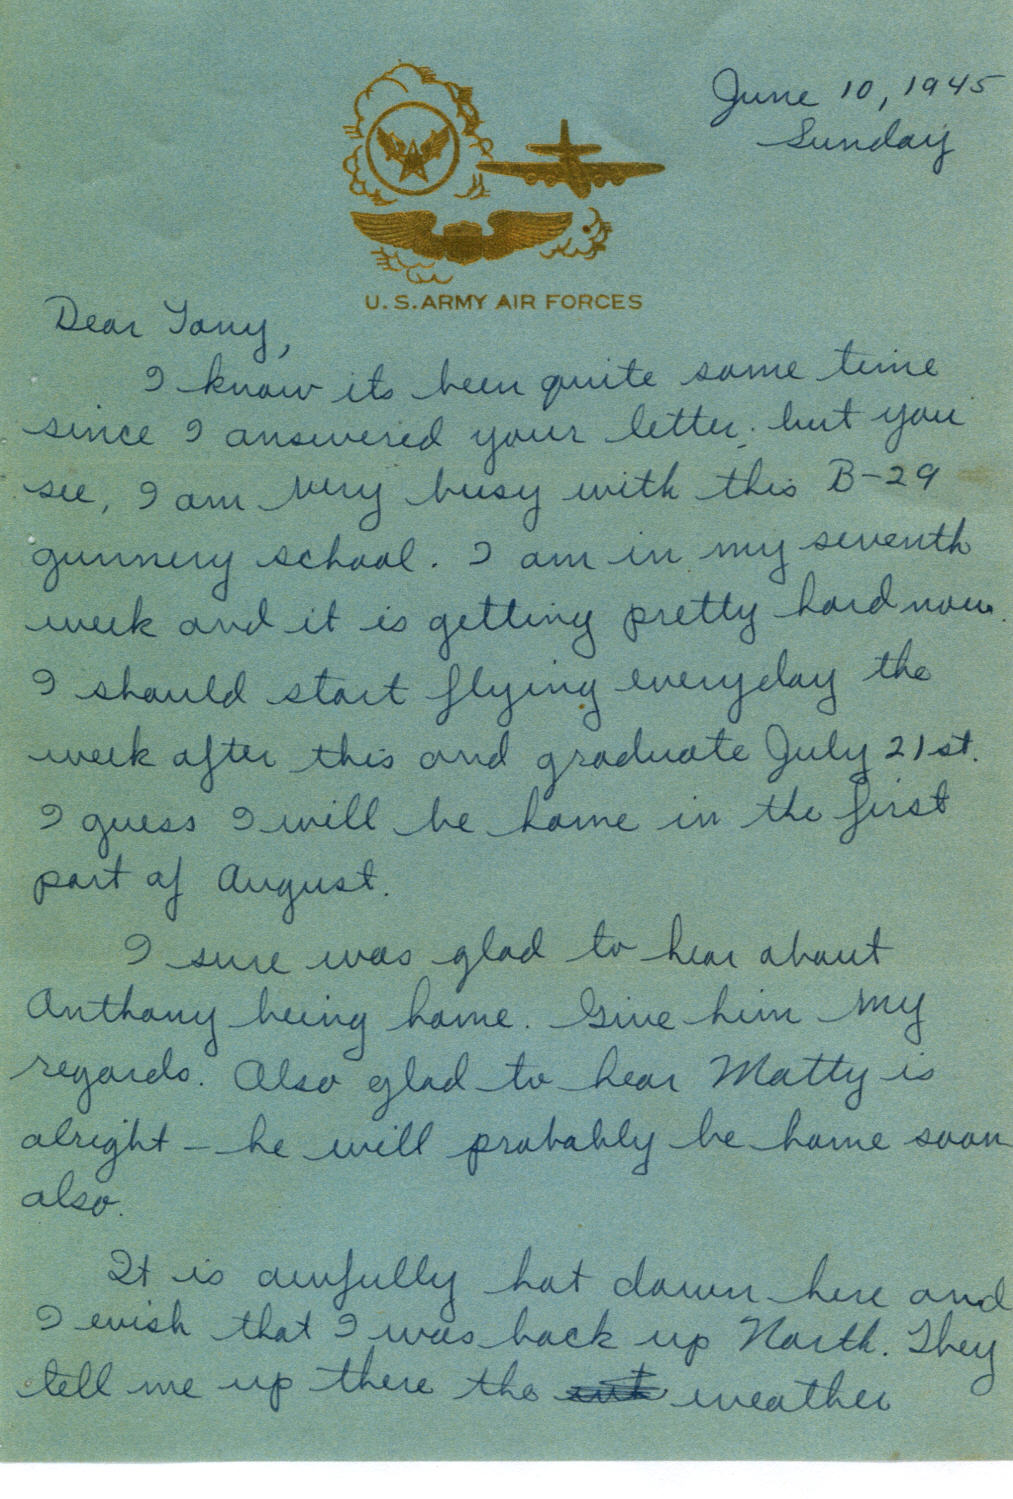 June 10, 1945
Sunday
U.S. ARMY AIR FORCES
Dear Tony,
I know its been quite some time
since I answered your letter; but you
see, I am very busy with this B-29
gunnery school. I am in my seventh
week and it is getting pretty hard now.
I should start flying everyday the
week after this and graduate July 21st.
I guess I will be home in the first
part of August.
I sure was glad to hear about
Anthony being home. Give him my
regards. Also glad to hear Matty is
alright – he will probably be home soon
also.
It is awfully hot down here and
I wish that I was back up North. They
tell me up there the weather